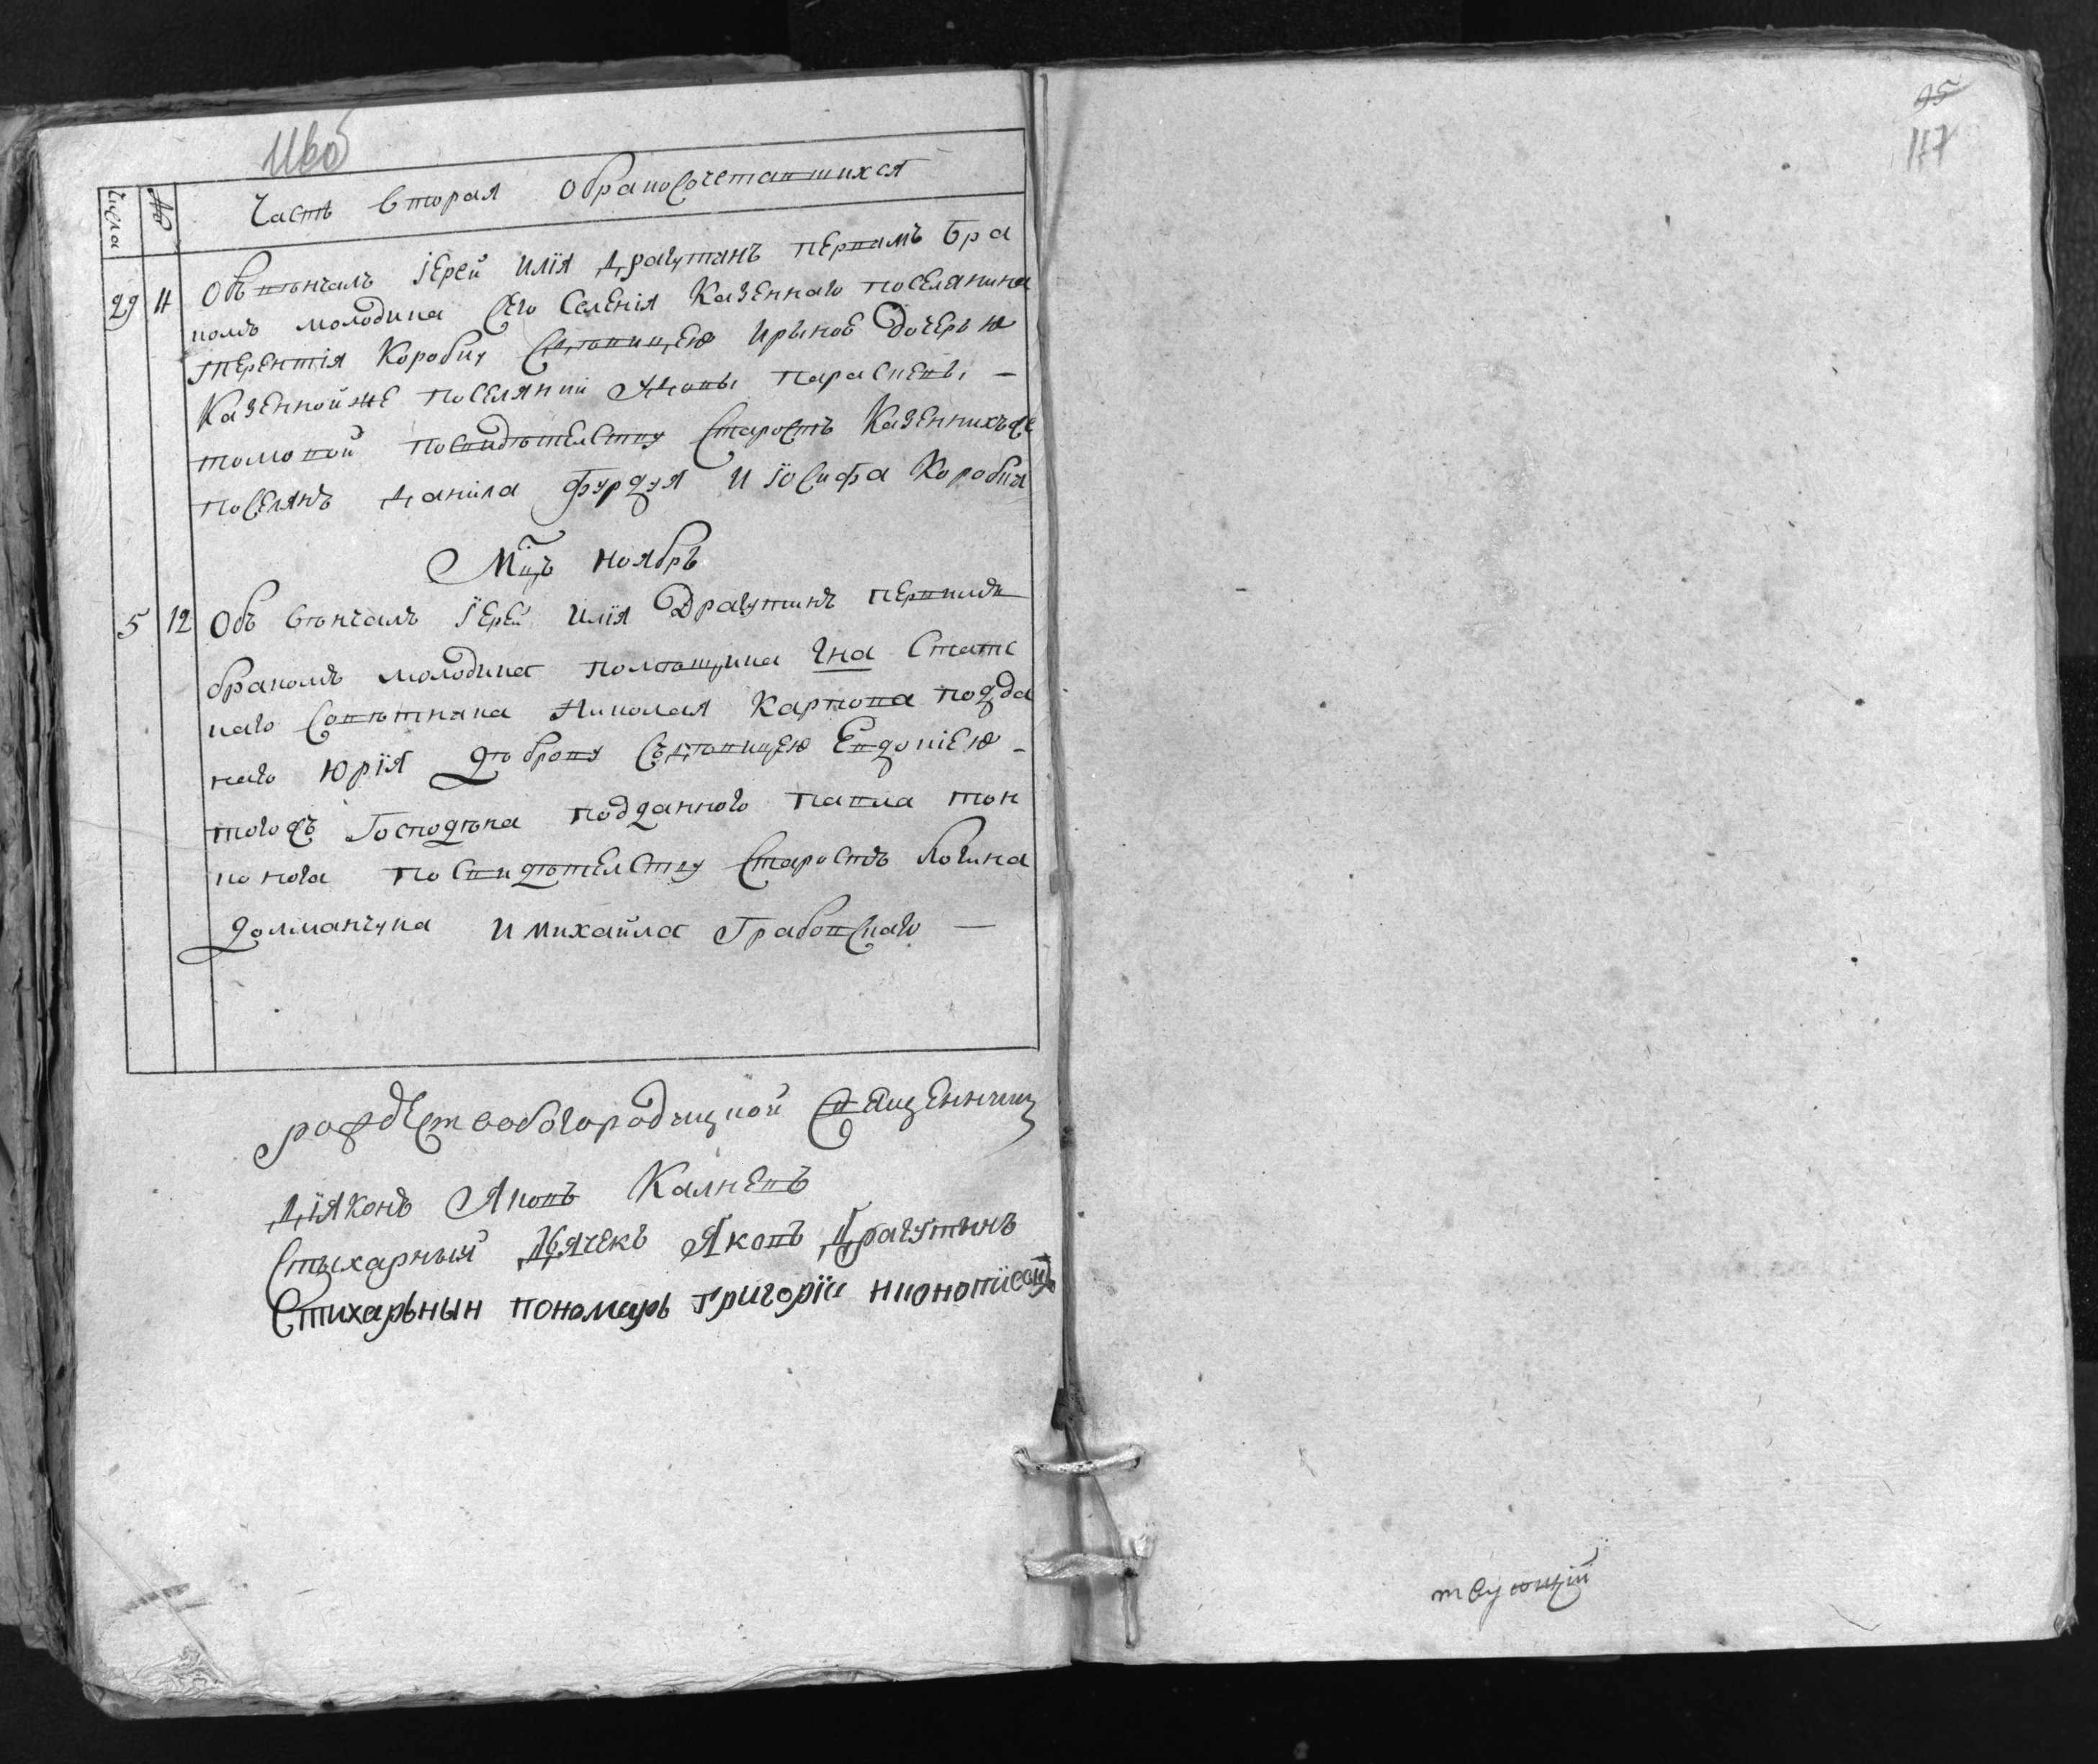 116об
95
117
Числа
№
Часть вторая о бракосочетавшихся
29 11 Обвѣнчалъ Іерей Илія Драгутанъ первымъ бра
комъ молодика сего селенія казеннаго поселянина
Терентія Коробку с дѣвицею Ириною дочерью
казенной же поселянки вдовы Парасkевы –
по свидѣтелству старостъ казенныхъ же
поселянъ Данила Фурдуя и Іосифа Коробка
Мцъ ноябрь
5 12 Объ вѣнчалъ Іерей Илія Драгутинъ первымъ
бракомъ молодика помѣщика Гна Статс
каго совѣтника Николая Карпова подда
наго Юрія Дѣброву съ дѣвицею Евдокіею –
тогожъ господѣна подданного Павла Тон
коного по свидѣтелству старостъ Логина
Долманчука и Михайла Грабовскаго –
рождество богородицкой священник
Діяконъ Яковъ Калневъ
Стыхарный Дячекъ Яковъ Драгутынъ
Стихарьный пономарь Григорій
твующій